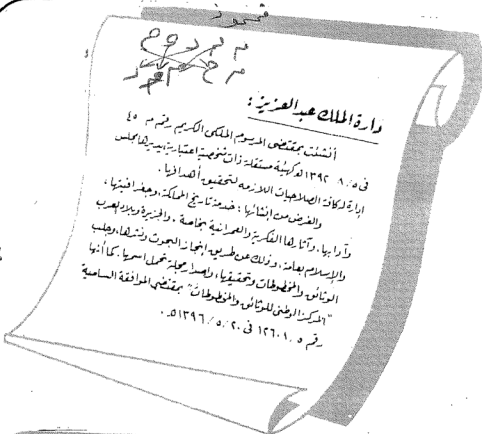 دارة الملك عبد العزيز :
أنشئت بمقتضى المرسوم الملكى الكريم رقم م ٤٥
فى ٨/٥/١٣٩٢ هـ كهيئة مستقلة ذات شخصية اعتبارية يديرها مجلس
إدارة له كافة الصلاحيات اللازمة لتحقيق أهدافها .
والغرض من إنشائها : خدمة تاريخ المملكة، وجغرافيتها ،
وآدابها، وآثارها الفكرية والعمرانية بخاصة ، والجزيرة وبلاد العرب
والإسلام بعامة، وذلك عن طريق إنجاز البحوث ونشرها، وجلب
الوثائق والمخطوطات وتحقيقها، وإصدار مجلة تحمل اسمها . كما أنها
"المركز الوطنى للوثائق والمخطوطات" بمقتضى الموافقة السامية
رقم ١٢٦٠١/٥ فى ٢٠/٥/١٣٩٦ هـ .